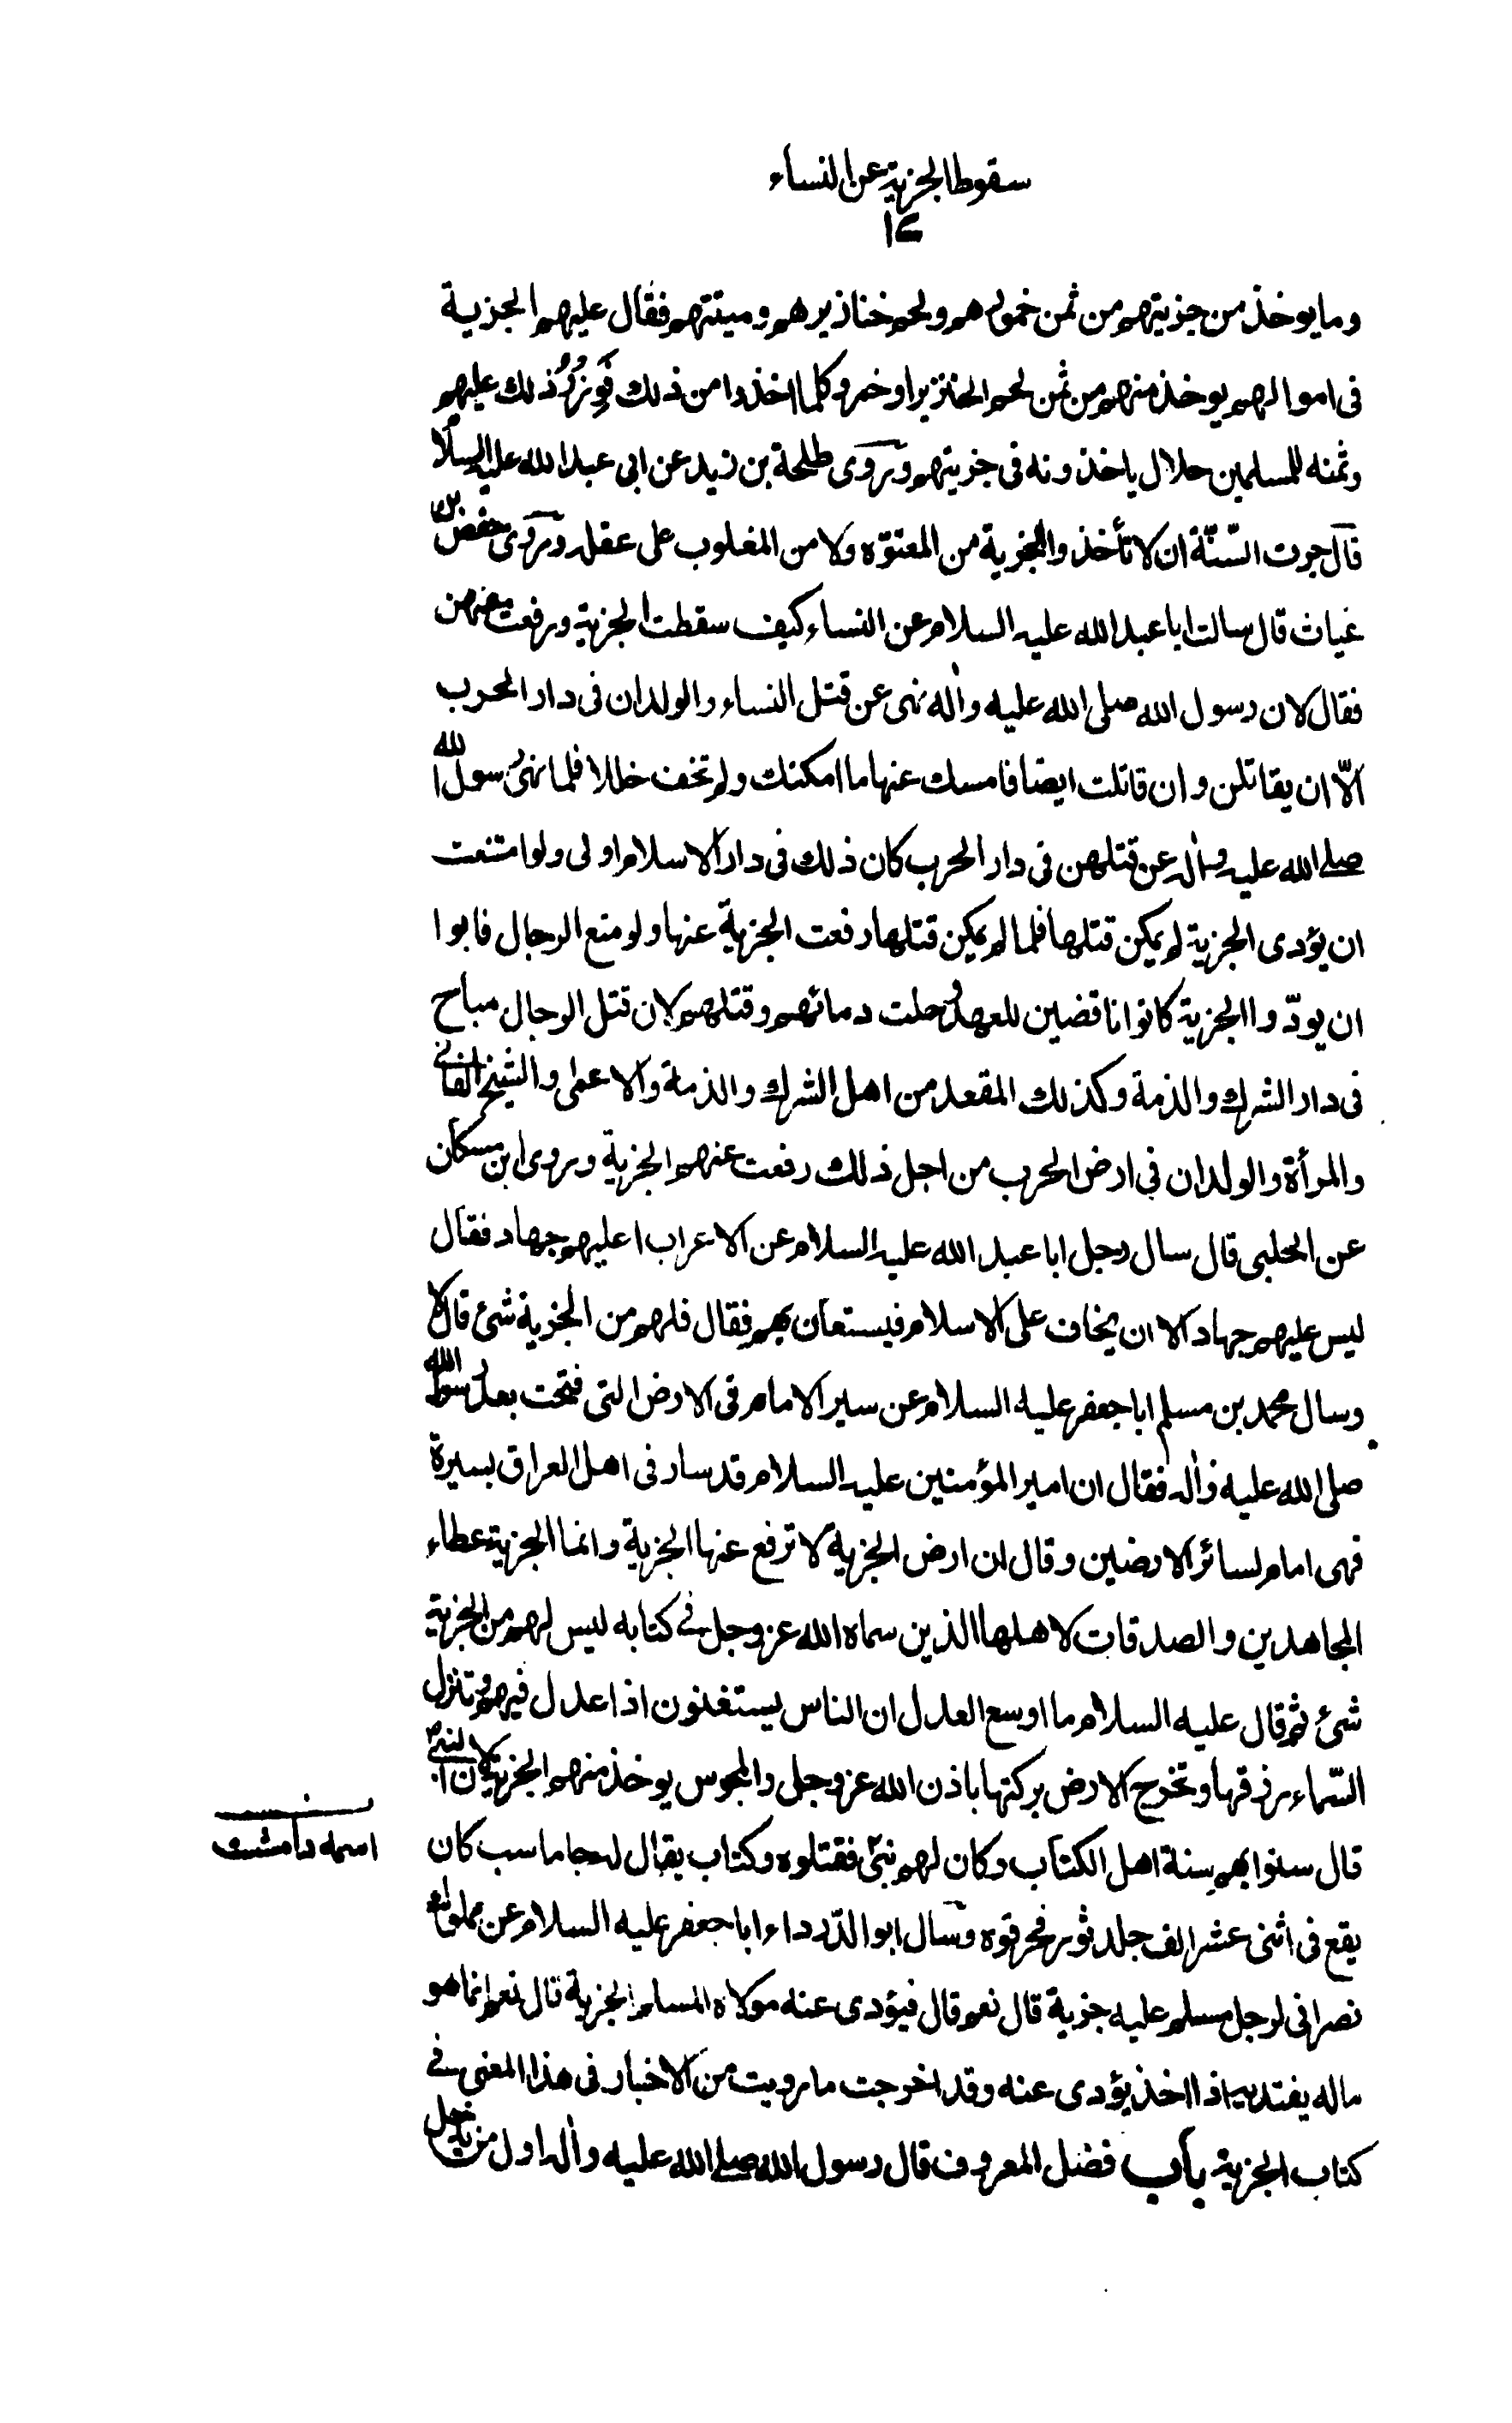 سقوط الجزية عن النساء
١٢
وما يوخذ من جزيتهم من ثمن خمورهم ولحم خنازيرهم وميتتهم فقال عليهم الجزية
فى اموالهم يوخذ منهم من ثمن لحم الخنزير او خمر وكلما اخذوا من ذلك فوزر ذلك عليهم
وثمنه للمسلمين حلال ياخذونه فى جزيتهم وروى طلحة بن زيد عن ابى عبد الله عليه السلام
قال جرت السّنّة ان لا تأخذ والجزية من المعتوّه ولا من المغلوب على عقله وروى حفص بن
غياث قال سالت ابا عبد الله عليه السلام عن النساء كيف سقطت الجزية ورفعت عنهن
فقال لان رسول الله صلى الله عليه واله نهى عن قتل النساء والولدان فى دار الحرب
الاّ ان يقاتلن وان قاتلت ايضا فامسك عنها ما امكنك ولم تخف خللا فلما نهى رسول الله
صلى الله عليه واله عن قتلهن فى دار الحرب كان ذلك فى دار الاسلام اولى ولو امتنعت
ان يؤدى الجزية لم يمكن قتلها فلما لم يمكن قتلها رفعت الجزية عنها ولو منع الرجال فابوا
ان يودّوا الجزية كانوا ناقضين للعهد وحلت دمائهم وقتلهم لان قتل الرجال مباح
فى دار الشرك والذمة وكذلك المقعد من اهل الشرك والذمة والاعمى والشيخ الفانى
والمرأة والولدان فى ارض الحرب من اجل ذلك رفعت عنهم الجزية وروى ابن مسكان
عن الحلبى قال سال رجل ابا عبد الله عليه السلام عن الاعراب اعليهم جهاد فقال
ليس عليهم جهاد الا ان يخاف على الاسلام فيستعان بهم فقال فلهم من الجزية شئ قال لا
وسال محمد بن مسلم ابا جعفر عليه السلام عن سير الامام فى الارض التى فتحت بعد رسول الله
صلى الله عليه واله فقال ان امير المؤمنين عليه السلام قد سار فى اهل العراق بسيرة
فهى امام لسائر الارضين وقال ان ارض الجزية لا ترفع عنها الجزية وانما الجزية عطاء
المجاهدين والصدقات لاهلها الذين سماه الله عز وجل فى كتابه ليس لهم من الجزية
شئ ثم قال عليه السلام ما اوسع العدل ان الناس يستغنون اذا عدل فيهم وتنزل
السّماء رزقها وتخرج الارض بركتها باذن الله عز وجل والمجوس يوخذ منهم الجزية لان النبى ص
قال سنوا بهم سنة اهل الكتاب وكان لهم نبىّ فقتلوه وكتاب يقال له جاماسب كان
اسمه دامشت
يقع فى اثنى عشر الف جلد ثور فحرقوه وسال ابو الدّرداء ابا جعفر عليه السلام عن مملوك
نصرانى لرجل مسلم عليه جزية قال نعم قال فيؤدى عنه مولاه المسلم الجزية قال نعم انما هو
ماله يفتديه اذا اخذ يؤدى عنه وقد اخرجت ما رويت من الاخبار فى هذا المعنى فى
كتاب الجزية باب فضل المعروف قال رسول الله صلى الله عليه واله اول من يدخل